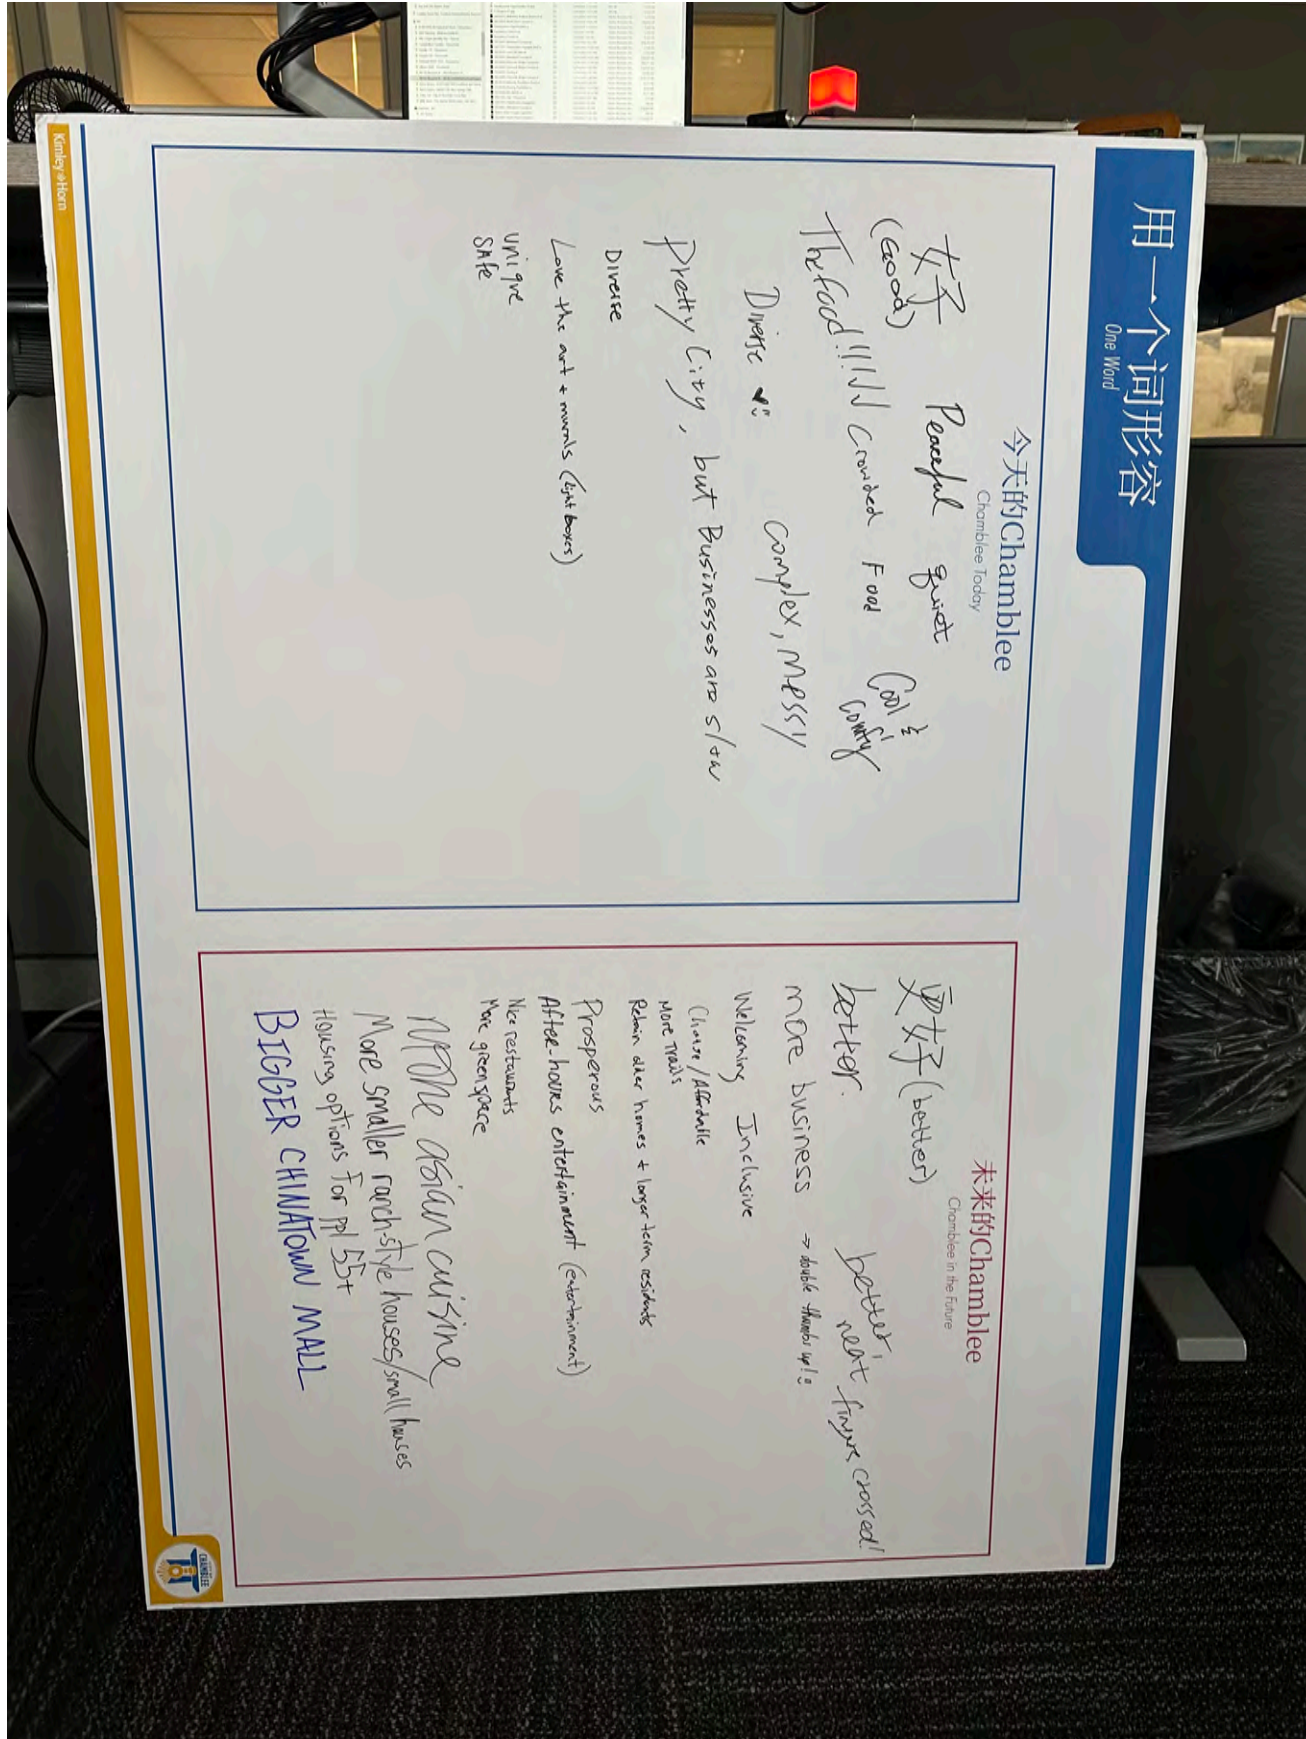 用一个词形容
One Word
今天的Chamblee
Chamblee Today
好
(Good)
Peaceful quiet
Cool & comfy
The food!!!! crowded Food
Diverse
complex, messy
Pretty City, but Businesses are slow
Diverse
Love the art + murals (light boxes)
unique
safe
未来的Chamblee
Chamblee in the Future
更好 (better)
better.
better, neat fingers crossed!
more business → double thumbs up!
Welcoming Inclusive
/Affordable
More trails
Retain older homes + longer term residents
Prosperous
After-hours entertainment (entertainment)
Nice restaurants
More greenspace
more asian cuisine
More smaller ranch-style houses/small houses
Housing options for ppl 55+
BIGGER CHINATOWN MALL
Kimley»Horn
CHAMBLEE